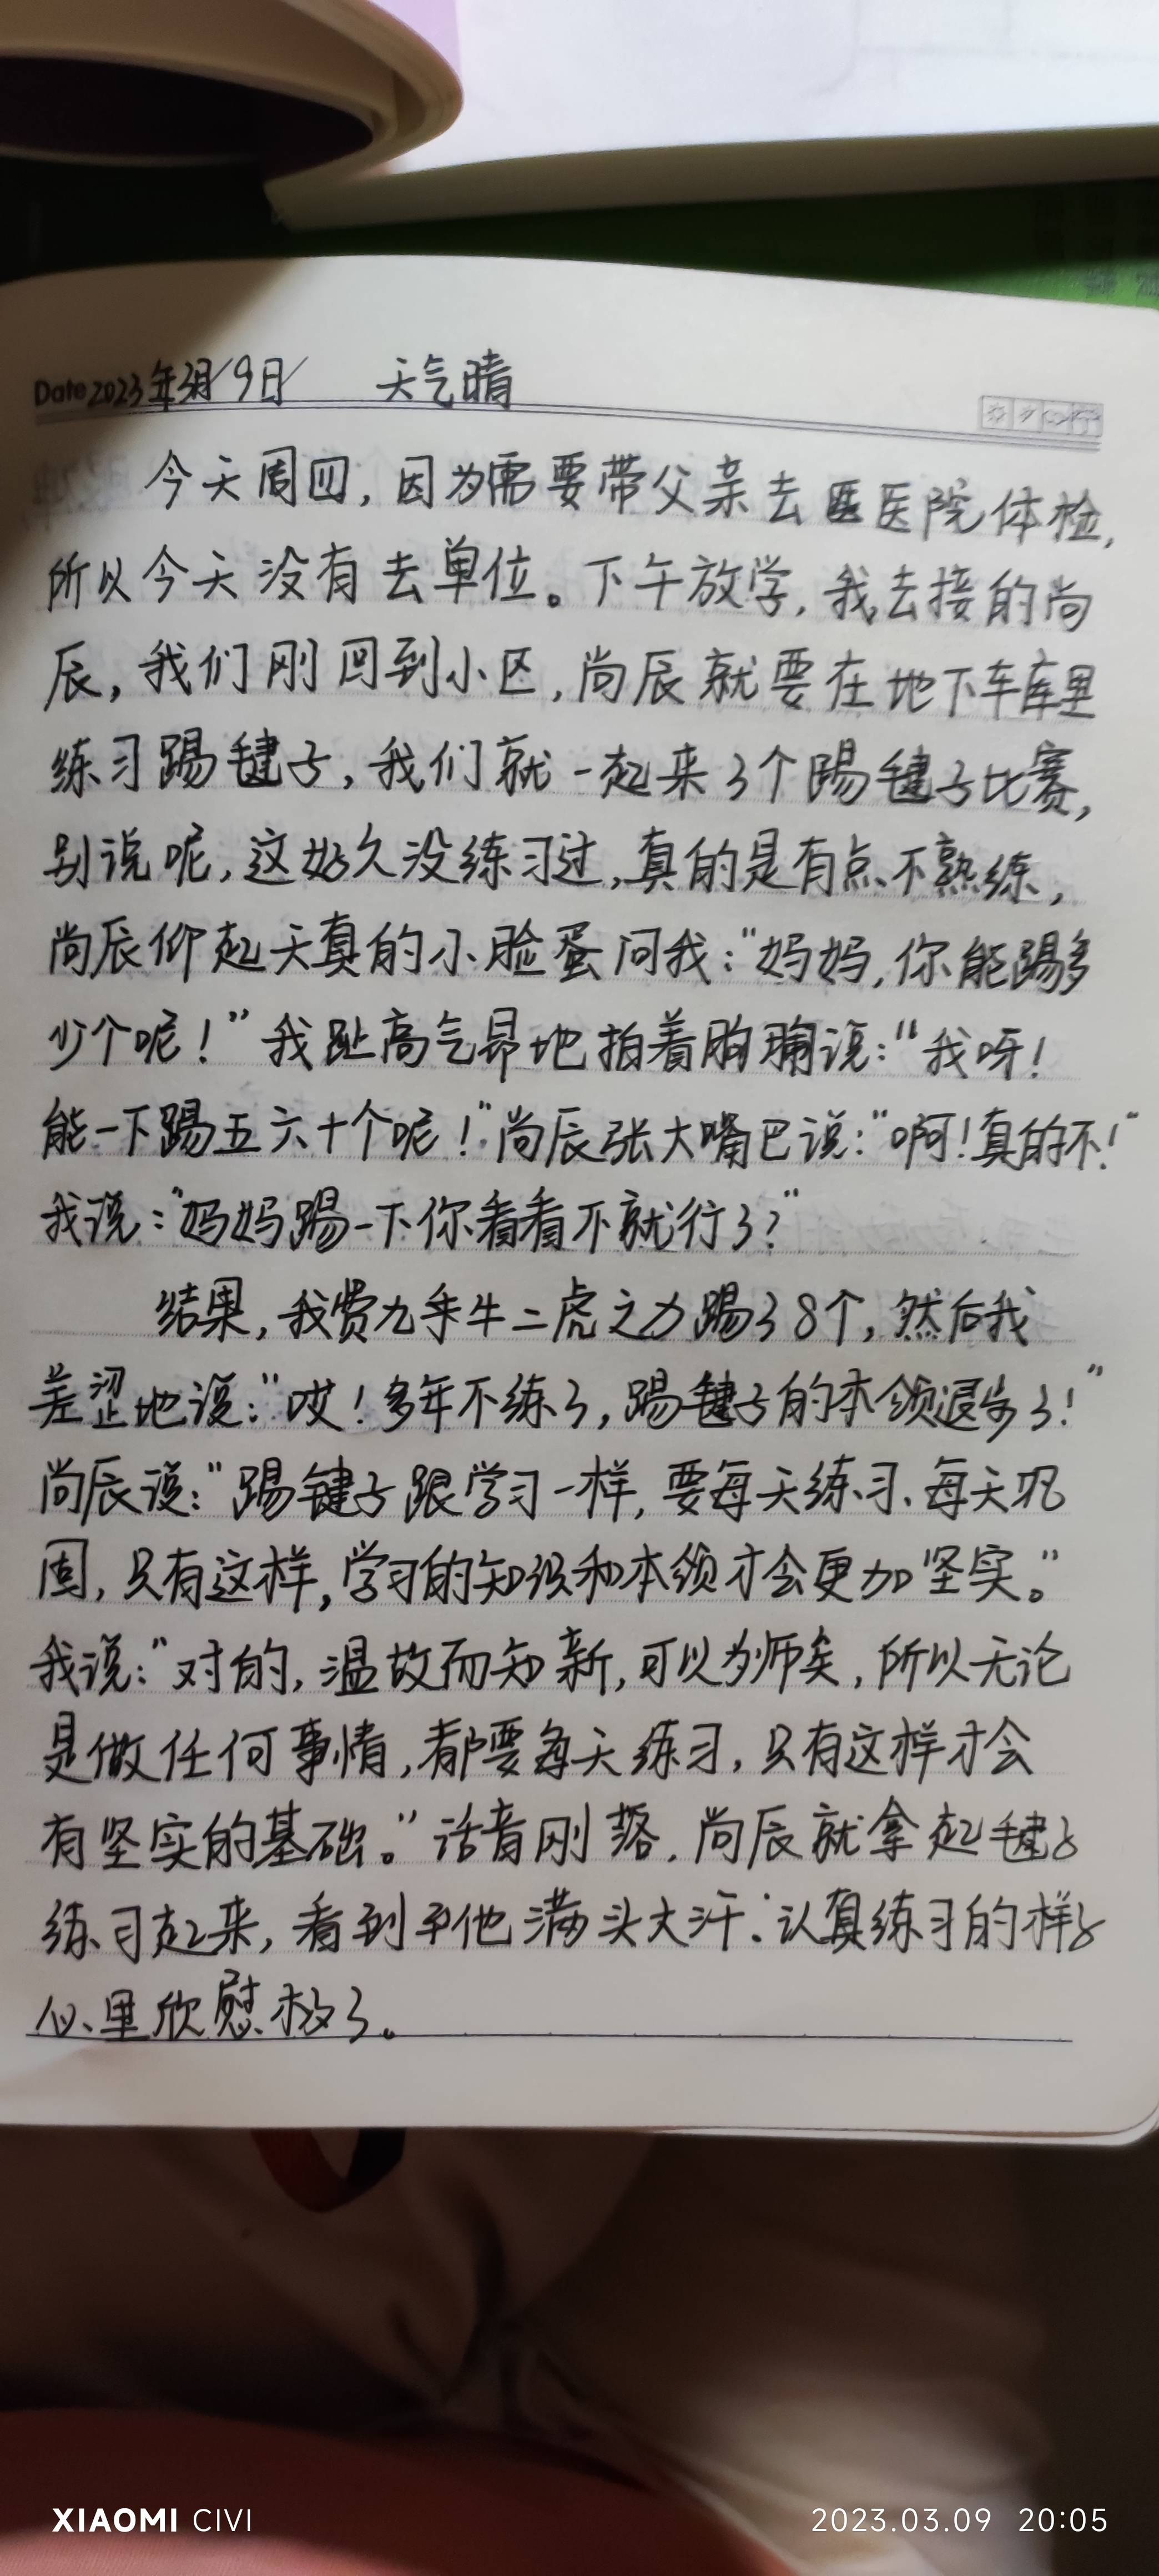 Date 2023年3月9日 天气晴
今天周四，因为需要带父亲去医医院体检，
所以今天没有去单位。下午放学，我去接的尚
辰，我们刚回到小区，尚辰就要在地下车库里
练习踢毽子，我们就一起来了个踢毽子比赛，
别说呢，这好久没练习过，真的是有点不熟练，
尚辰仰起天真的小脸蛋问我：“妈妈，你能踢多
少个呢！”我趾高气昂地拍着胸脯说：“我呀！
能一下踢五六十个呢！”尚辰张大嘴巴说：“啊！真的不！”
我说：“妈妈踢一下你看看不就行了？”
结果，我费九牛二虎之力踢了8个，然后我
羞涩地说：“哎！多年不练了，踢毽子的本领退步了！”
尚辰说：“踢键子跟学习一样，要每天练习、每天巩
固，只有这样，学习的知识和本领才会更加坚实。”
我说：“对的，温故而知新，可以为师矣，所以无论
是做任何事情，都要每天练习，只有这样才会
有坚实的基础。”话音刚落，尚辰就拿起毽子
练习起来，看到他满头大汗．认真练习的样子
心里欣慰极了。
XIAOMI CIVI
2023.03.09 20:05